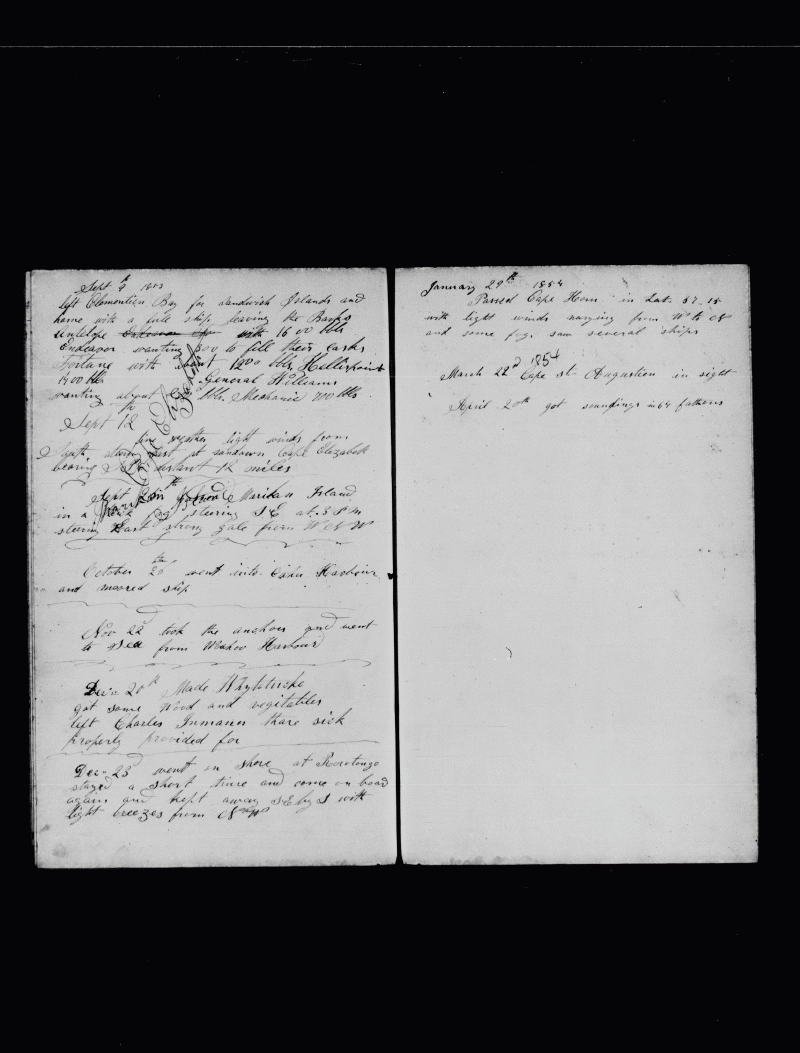 Sept 9th 1853
left Clementien Bay for Sandwich Islands and
home with a full ship leaving the Barks
Antelope with 1600 bbls
Endeavor wanting 300 to fill their casks
Fortune with about 1200 bbls
1400 bbls General Williams
wanting about bbls Mechanic 700 bbls
Sept 12th
fine weather light winds from
South at sundown Cape Elizabeth
bearing distant 12 miles
Sept Marikan Island
in a steering SE at 3 PM
steering East strong gale from W N W
October 20th went into Harbour
and moored ship
Nov 22d took the anchors and went
to Sea from Woahoo Harbour
Dec 20th Made Whytoticke
got some Wood and vegitables
left Charles Inmanes thare sick
properly provided for
Dec 23d went on shore at Rorotongo
stayed a short time and come on board
again and kept away SE by S with
light breezes from
January 29th 1854
Passed Cape Horn in Lat. 57-15
with light winds varying from W to N
and some fogs saw several ships
March 22d 1854
Cape St Augustien in sight
April 20th got soundings in 64 fathoms